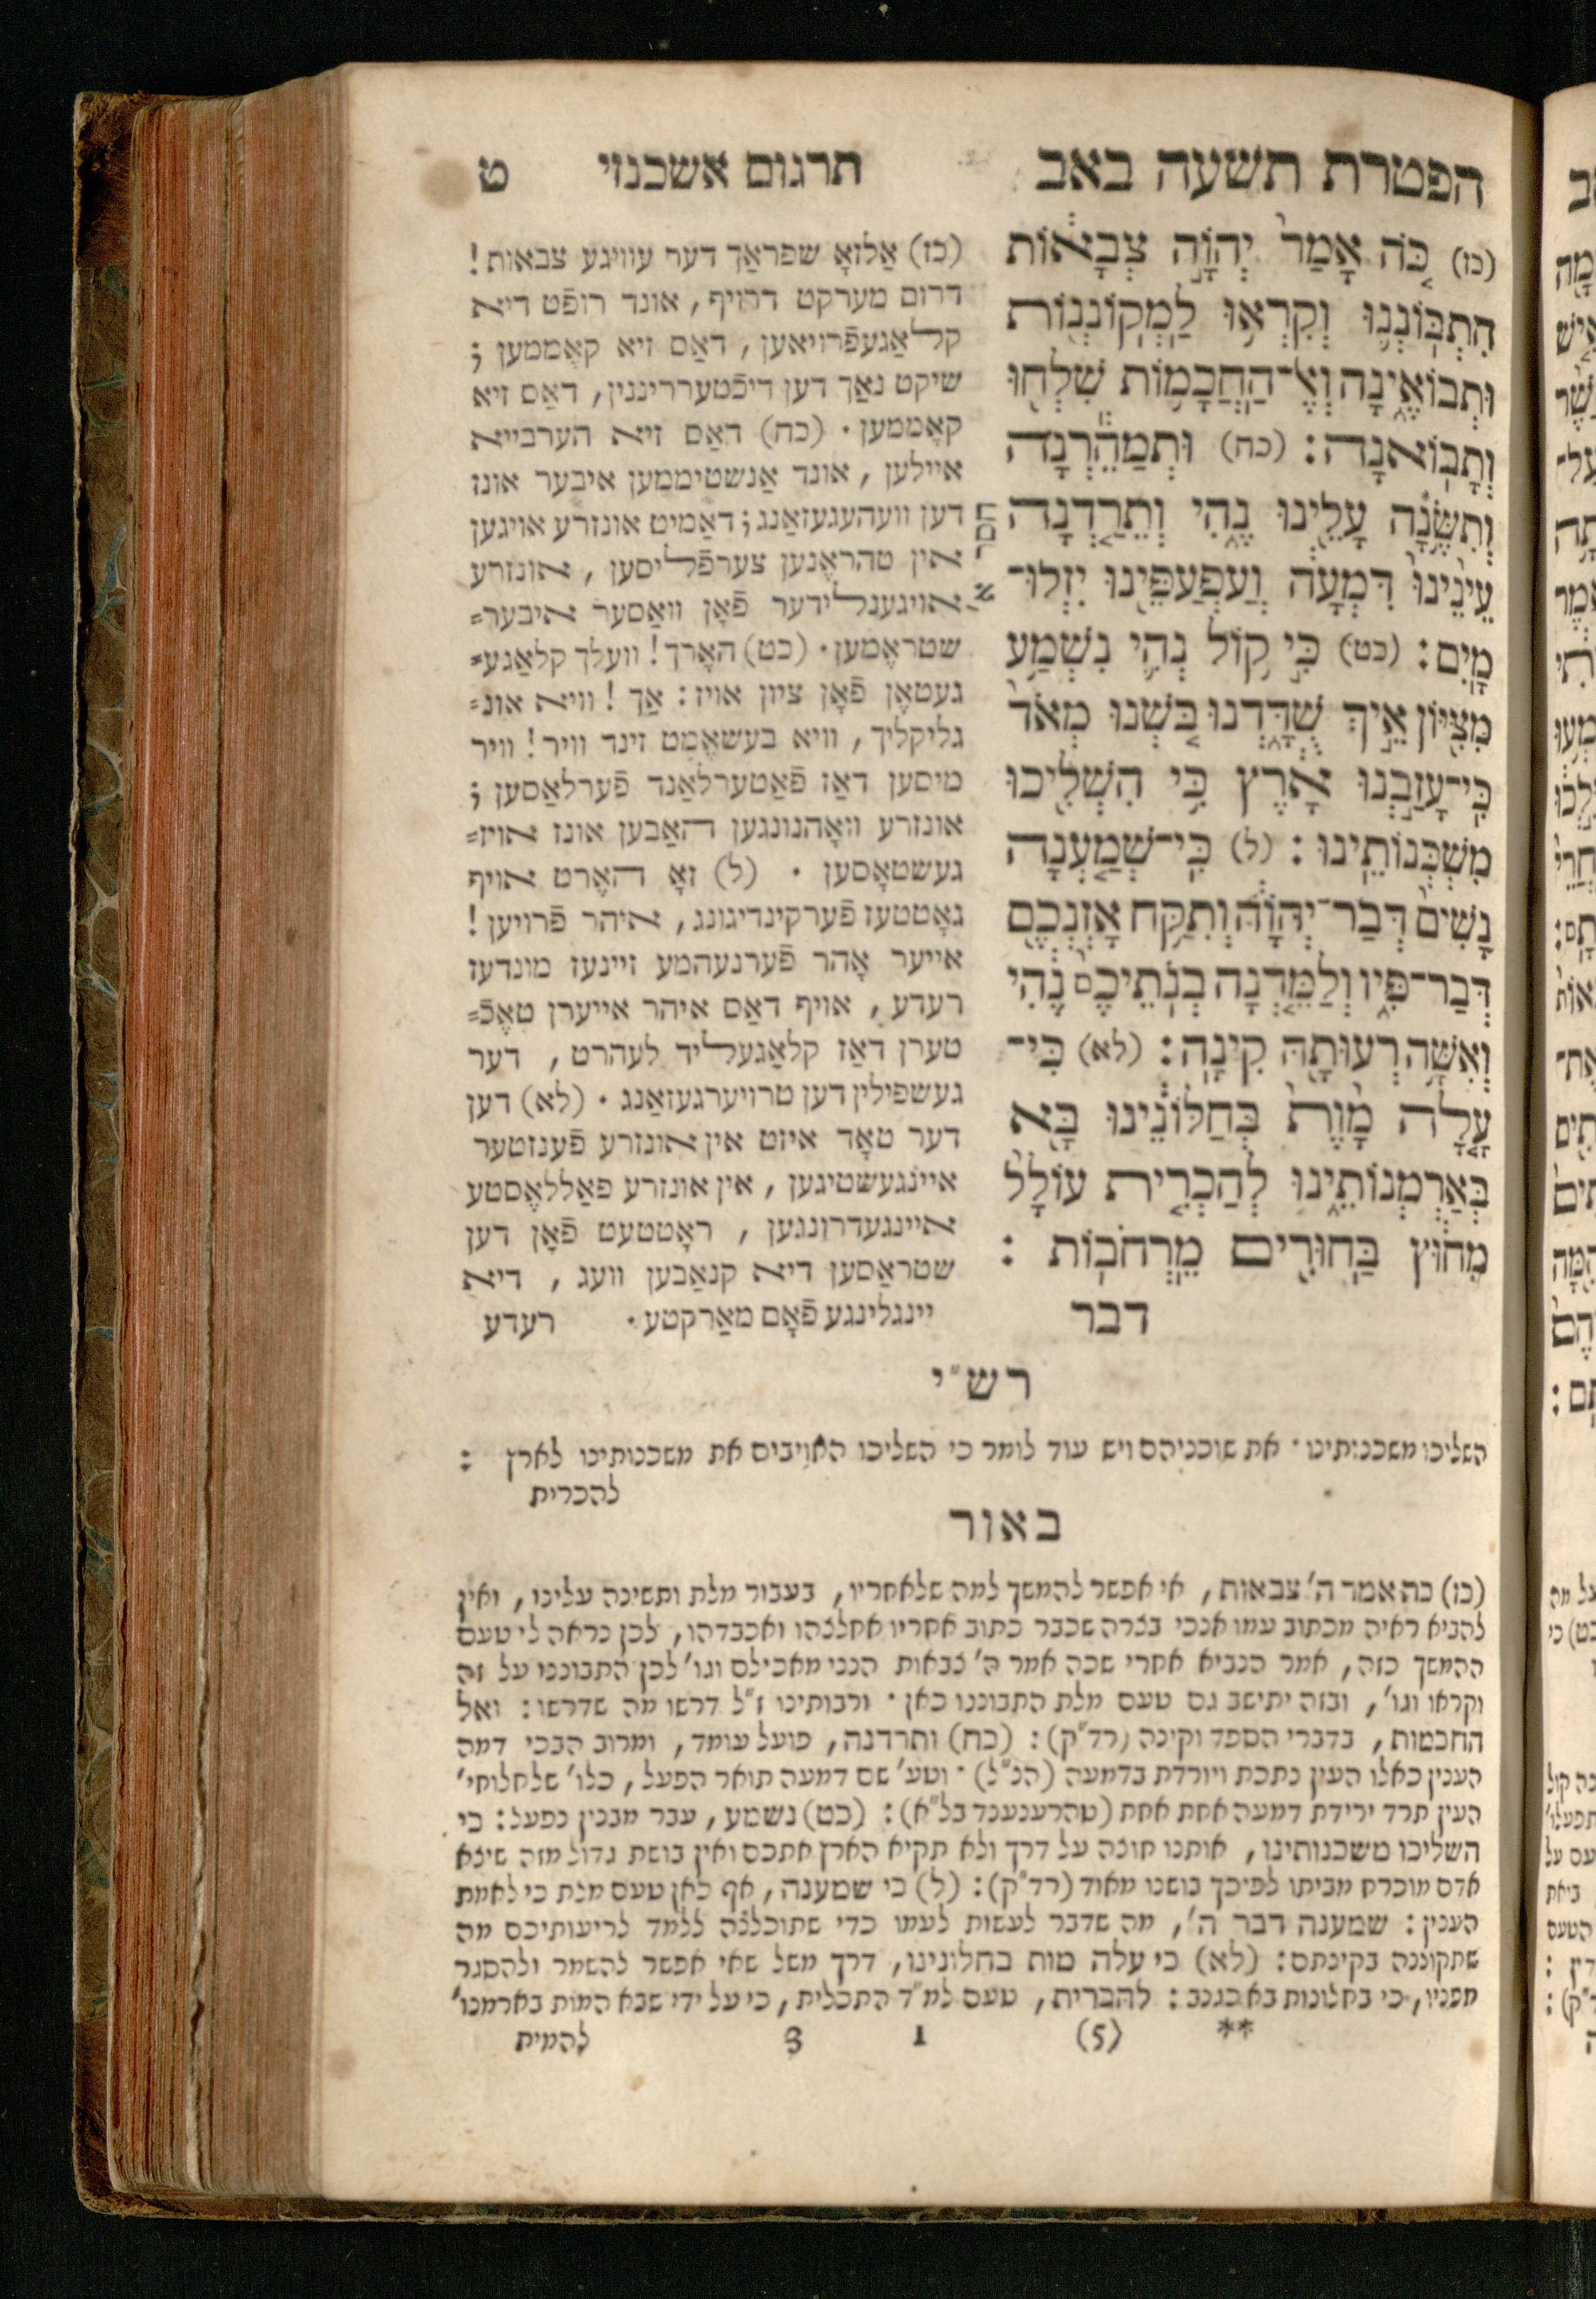 הפטרת תשעה באב
תרגום אשכנזי
ט
(כז) כֹּה אָמַר יְהוָֹה צְבָאוֹת
הִתְבּוֹנְנוּ וְקִרְאוּ לַמְקוֹנְנוֹת
וּתְבוֹאֶינָה וְאֶל־הַחֲכָמוֹת שִׁלְחוּ
וְתָבוֹאנָה: (כח) וּתְמַהֵרְנָה
וְתִשֶּׂנָה עָלֵינוּ נֶהִי וְתֵרַדְנָה
עֵינֵינוּ דִּמְעָה וְעַפְעַפֵּינוּ יִזְּלוּ־
מָיִם: (כט) כִּי קוֹל נְהִי נִשְׁמַע
מִצִּיּוֹן אֵיךְ שֻׁדָּדְנוּ בֹּשְׁנוּ מְאֹד
כִּי־עָזַבְנוּ אָרֶץ כִּי הִשְׁלִיכוּ
מִשְׁכְּנוֹתֵינוּ: (ל) כִּי־שְׁמַעְנָה
נָשִׁים דְּבַר־יְהוָֹה וְתִקַּח אָזְנְכֶם
דְּבַר־פִּיו וְלַמֵּדְנָה בְנֹתֵיכֶם נֶהִי
וְאִשָּׁה רְעוּתָהּ קִינָה: (לא) כִּי־
עָלָה מָוֶת בְּחַלּוֹנֵינוּ בָּא
בְּאַרְמְנוֹתֵינוּ לְהַכְרִית עוֹלָל
מִחוּץ בַּחוּרִים מֵרְחֹבוֹת :
דבר
חסר א׳
(כז) אַלזאָ שפראַך דער עוויגע צבאות!
דרום מערקט דרויף, אונד רופֿט דיא
קלאַגעפֿרויאען, דאַס זיא קאָממען;
שיקט נאַך דען דיכֿטערריננין, דאַס זיא
קאָממען. (כח) דאַס זיא הערבייא
איילען, אונד אַנשטיממען איבער אונז
דען וועהעגעזאַנג; דאַמיט אונזרע אויגען
אין טהראֶנען צערפֿליסען, אונזרע
אויגענלידער פֿאָן וואַסער איבער=
שטראָמען. (כט) האָרך! וועלך קלאַגע=
געטאָן פֿאָן ציון אויז: אַך! וויא אונ=
גליקליך, וויא בעשאֶמט זינד וויר! וויר
מיסען דאַז פֿאַטערלאַנד פֿערלאַסען;
אונזרע וואָהנונגען האַבען אונז אויז=
געשטאָסען. (ל) זאָ האָרט אויף
גאָטטעז פֿערקינדיגונג, איהר פֿרויען!
אייער אָהר פֿערנעהמע זיינעז מונדעז
רעדע, אויף דאַס איהר אייערן טאָכֿ=
טערן דאַז קלאַגעליד לעהרט, דער
געשפילין דען טרויערגעזאַנג. (לא) דען
דער טאָד איזט אין אונזרע פֿענזטער
איינגעשטיגען, אין אונזרע פאַללאֶסטע
איינגעדרונגען, ראָטטעט פֿאָן דען
שטראַסען דיא קנאַבען וועג, דיא
יינגלינגע פֿאָם מאַרקטע.
רעדע
רש״י
השליכו משכנותינו· את שוכניהם ויש עוד לומר כי השליכו האויבים את משכנותינו לארץ :
להכרית
באור
(כז) כה אמר ה׳ צבאות, אי אפשר להמשך למה שלאחריו, בעבור מלת ותשינה עלינו, ואין
להביא ראיה מכתוב עמו אנכי בצרה שכבר כתוב אחריו אחלצהו ואכבדהו, לכן נראה לי טעם
ההמשך כזה, אמר הנביא אחרי שכה אמר ה׳ צבאות הנני מאכילם וגו׳ לכן התבוננו על זה
וקראו וגו׳, ובזה יתישב גם טעם מלת התבוננו כאן· ורבותינו ז״ל דרשו מה שדרשו: ואל
החכמות, בדברי הספד וקינה (רד״ק): (כח) ותרדנה, פועל עומד, ומרוב הבכי דמה
הענין כאלו העין נתכת ויורדת בדמעה (הנ״ל)· וטע׳ שם דמעה תואר הפעל, כלו׳ שלחלוחי׳
העין תרד ירידת דמעה אחת אחת (טהרענענד בל״א): (כט) נשמע, עבר מבנין נפעל: כי
השליכו משכנותינו, אותנו חוצה על דרך ולא תקיא הארץ אתכם ואין בושת גדול מזה שיצא
אדם מוכרח מביתו לפיכך בושנו מאוד (רד״ק): (ל) כי שמענה, אף כאן טעם מלת כי לאמת
הענין: שמענה דבר ה׳, מה שדבר לעשות לעמו כדי שתוכלנה ללמד לריעותיכם מה
שתקוננה בקינתם: (לא) כי עלה מות בחלונינו, דרך משל שאי אפשר להשמר ולהסגר
מפניו, כי בחלונות בא כגנב: להכרית, טעם למ״ד התכלית, כי על ידי שבא המות בארמנו׳
** (5) 1 3 להמית